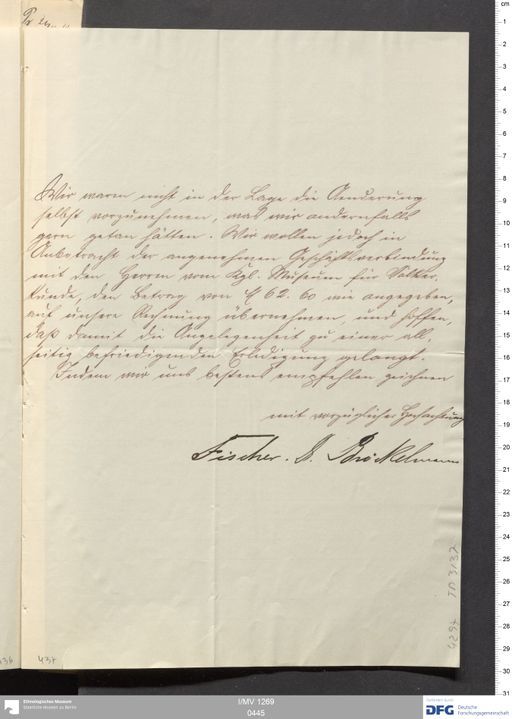 Wir waren nicht in der Lage die Aenderung
selbst vorzunehmen, was wir andernfalls
gern getan hätten. Wir wollen jedoch in
Anbetracht der angenehmen Geschäftsverbindung
mit den Herren vom Kgl. Museum für Völker-
kunde, den Betrag von 62.60 wie angegeben,
auf unsere Rechnung übernehmen, und hoffen,
daß damit die Angelegenheit zu einer all-
seitig befriedigenden Erledigung gelangt.
Indem wir uns bestens empfehlen zeichnen
mit vorzüglicher Hochachtung
Fischer. D. Brökelmann
437
Ethnologisches Museum
Staatliche Museen zu Berlin
I/MV 1269
0445
DFG Deutsche
Forschungsgemeinschaft
cm
1
2
3
4
5
6
7
8
9
10
11
12
13
14
15
16
17
18
19
20
21
22
23
24
25
26
27
28
29
30
31